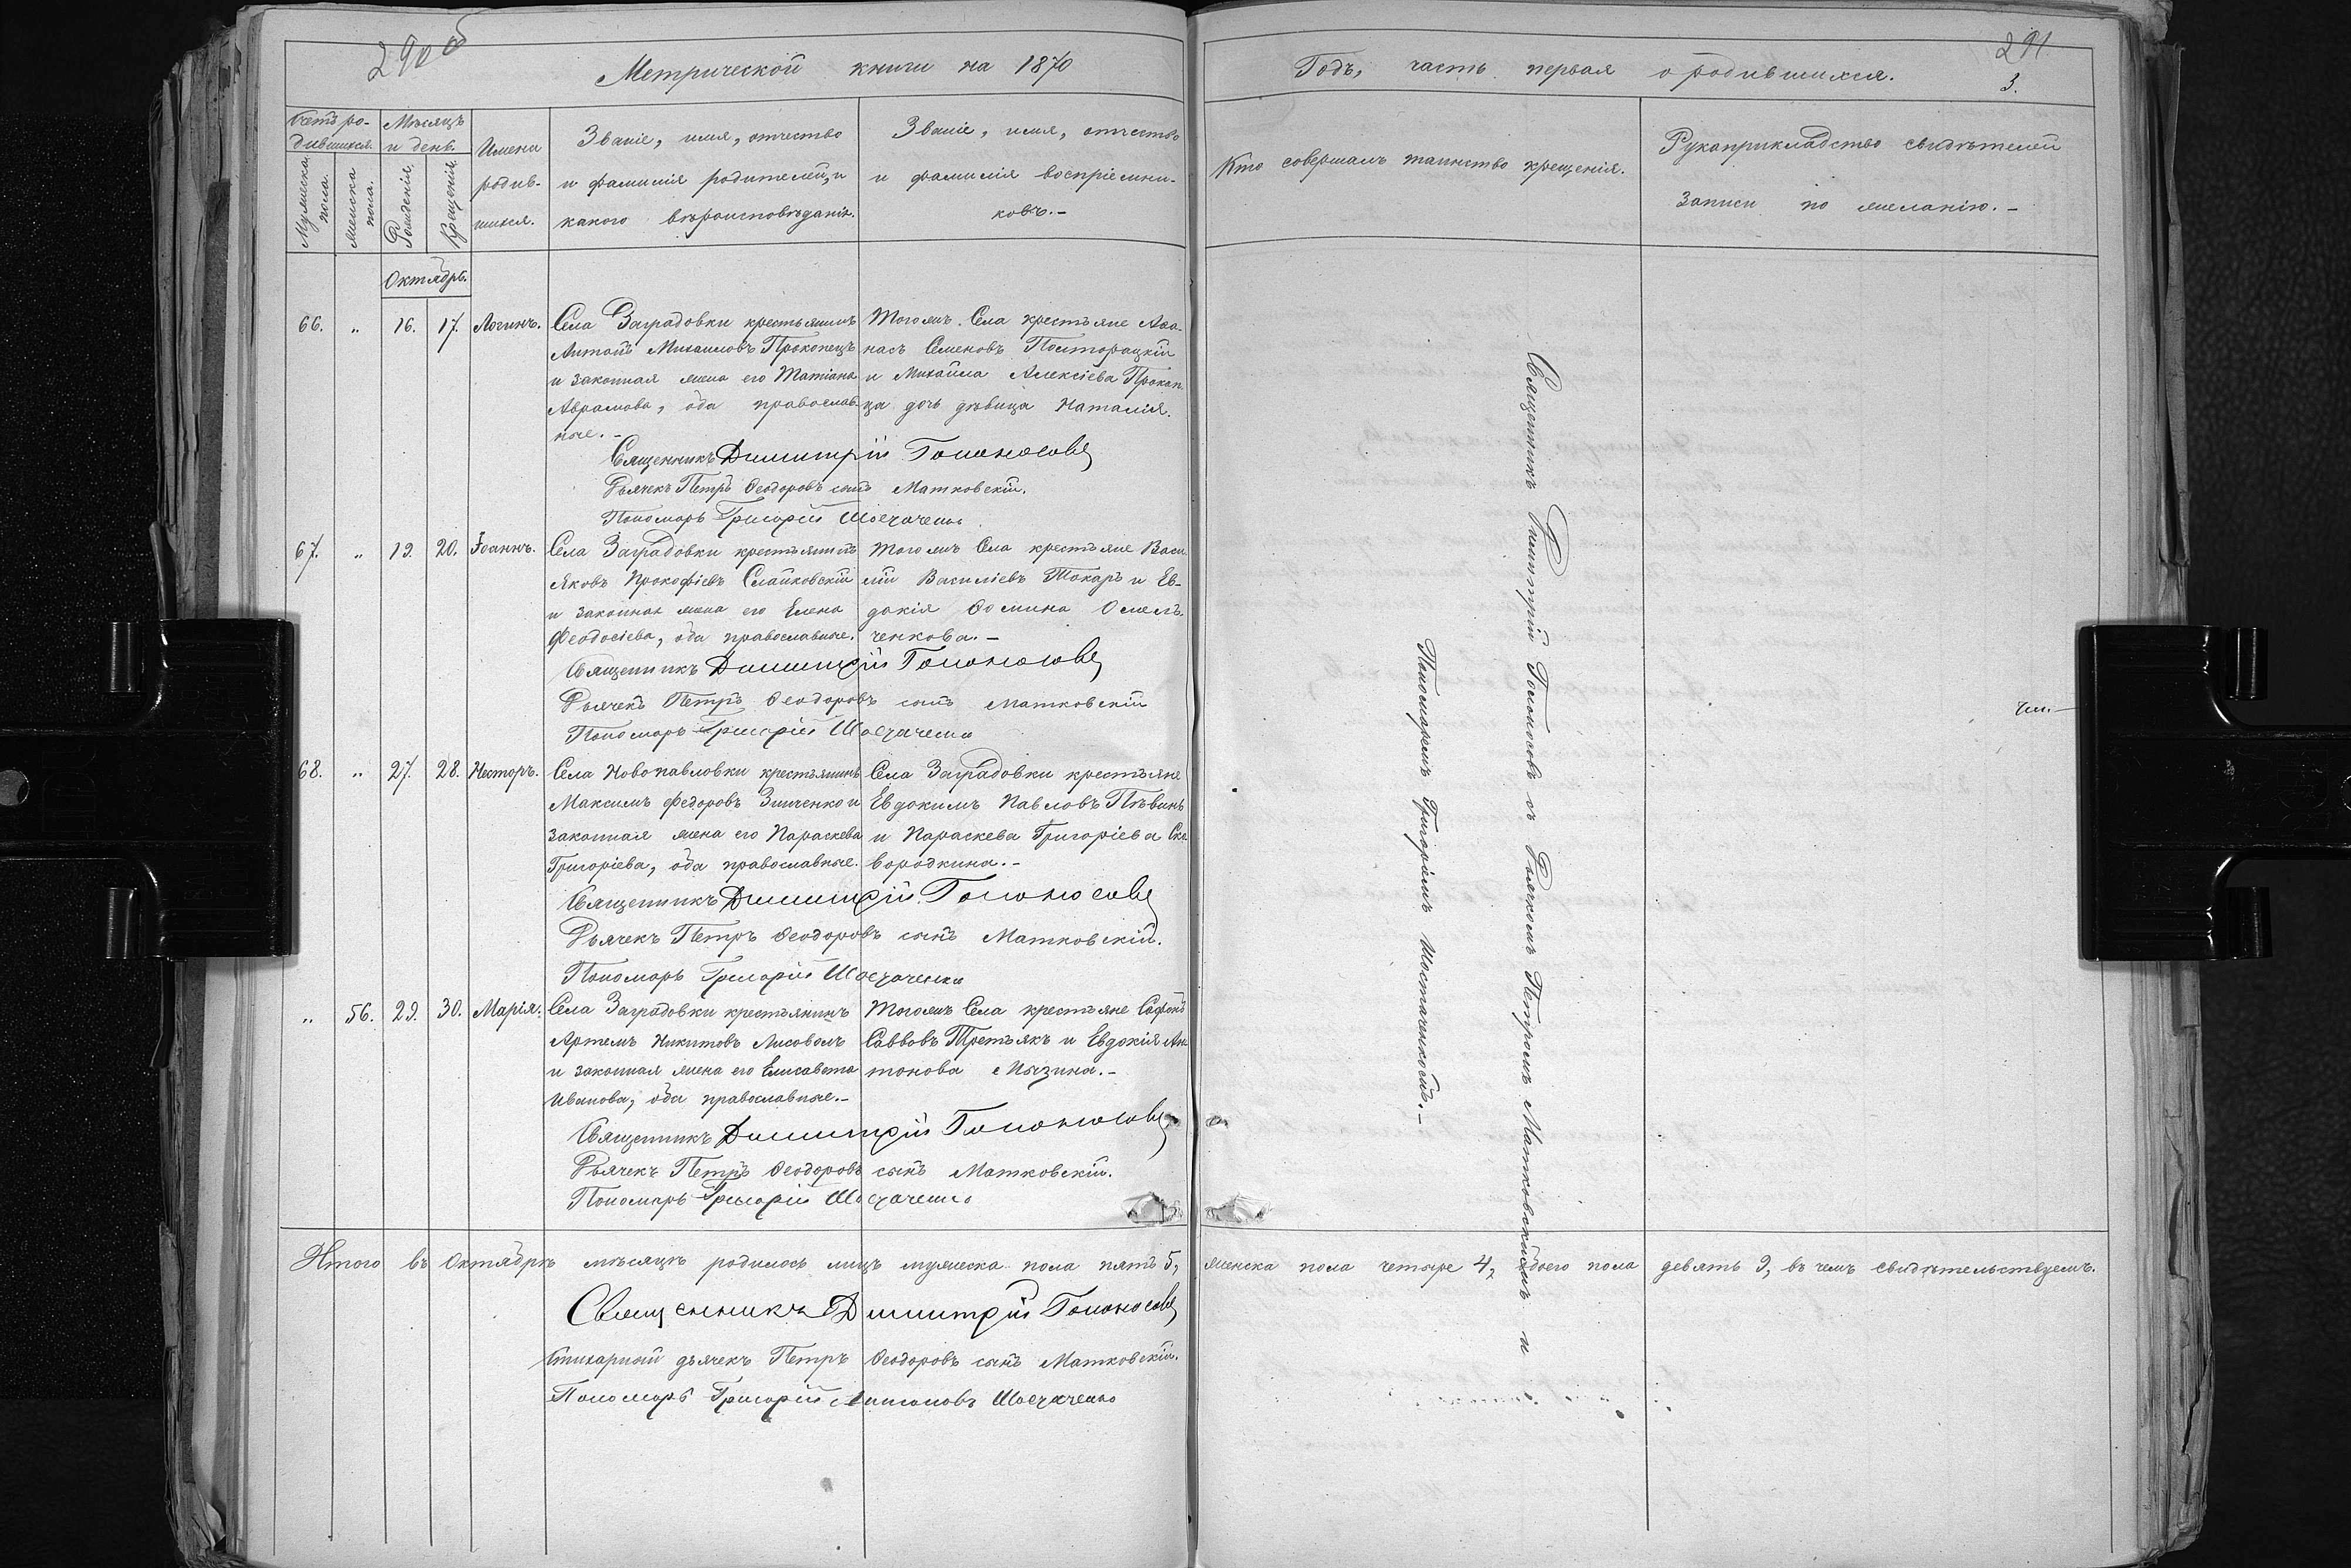 290 об
Метрической книги на 1870
Счетъ ро-
дившихся.
Мѣсяцъ
и день.
Мужеска
пола.
Женска
пола.
Рожденія.
Крещенія.
Имена
родив-
шихся.
Званіе, имя, отчество
и фамилія родителей, и
какого вѣроисповѣданія.
Званіе, имя, отчество
и фамилія воспріемни-
ковъ.-
Октябрь.
66. " 16. 17. Логинъ.
Села Заградовки крестьянинъ
Антонъ Михаиловъ Прокопецъ
и законная жена его Татіана
Аврамова, оба православ-
ные.-
Тогожъ Села крестьяне Афа-
насъ Семеновъ Полторацкій
и Михаила Алексіева Прокоп-
ца дочь дѣвица Наталія.
Священникъ Димитрій Голоносовъ
Дьячекъ Петръ Ѳеодоровъ сынъ Матковскій.
Пономарь Григорій Шостаченко
67. " 19. 20. Іоаннъ.
Села Заградовки крестьянинъ
Яковъ Прокофіевъ Слайковскій
и законная жена его Елена
Феодосіева, оба православные.
Тогожъ Села крестьяне Васи-
лій Василіевъ Токарь и Ев-
докія Ѳомина Омель-
ченкова.-
Священникъ Димитрій Голоносовъ
Дьячекъ Петръ Ѳеодоровъ сынъ Матковскій
Пономарь Григорій Шостаченко
68. " 27. 28. Несторъ.
Села Новопавловки крестьянинъ
Максимъ Федоровъ Зинченко и
законная жена его Параскева
Григоріева, оба православные.
Села Заградовки крестьяне
Евдокимъ Павловъ Пѣвинь
и Параскева Григоріева Ско-
вородкина.-
Священникъ Димитрій Голоносовъ
Дьячекъ Петръ Ѳеодоровъ сынъ Матковскій.
Пономарь Григорій Шостаченко
" 56. 29. 30. Марія.
Села Заградовки крестьянинъ
Артемъ Никитовъ Лисоволъ
и законная жена его Елисавета
Иванова, оба православные.-
Тогожъ Села крестьяне Софонъ
Саввовъ Третьякъ и Евдокія Ан-
тонова Мызина.-
Священникъ Димитрій Голоносовъ
Дьячекъ Петръ Ѳеодоровъ сынъ Матковскій.
Пономарь Григорій Шостаченко
Итого въ Октябрѣ мѣсяцѣ родилось лицъ мужеска пола пять 5,
Священникъ Димитрій Голоносовъ
Стихарный дьячекъ Петръ Ѳеодоровъ сынъ Матковскій.
Пономарь Григорій Антоновъ Шостаченко
291
Годъ, часть первая о родившихся.
3.
Кто совершалъ таинство крещенія.
Рукоприкладство свидѣтелей
записи по желанію.-
Священникъ Димитрій Голоносовъ съ Дьячкомъ Петромъ Матковскимъ и
Пономаремъ Григоріемъ Шостаченкомъ.-
женска пола четыре 4, обоего пола девять 9, въ чемъ свидѣтельствуемъ.